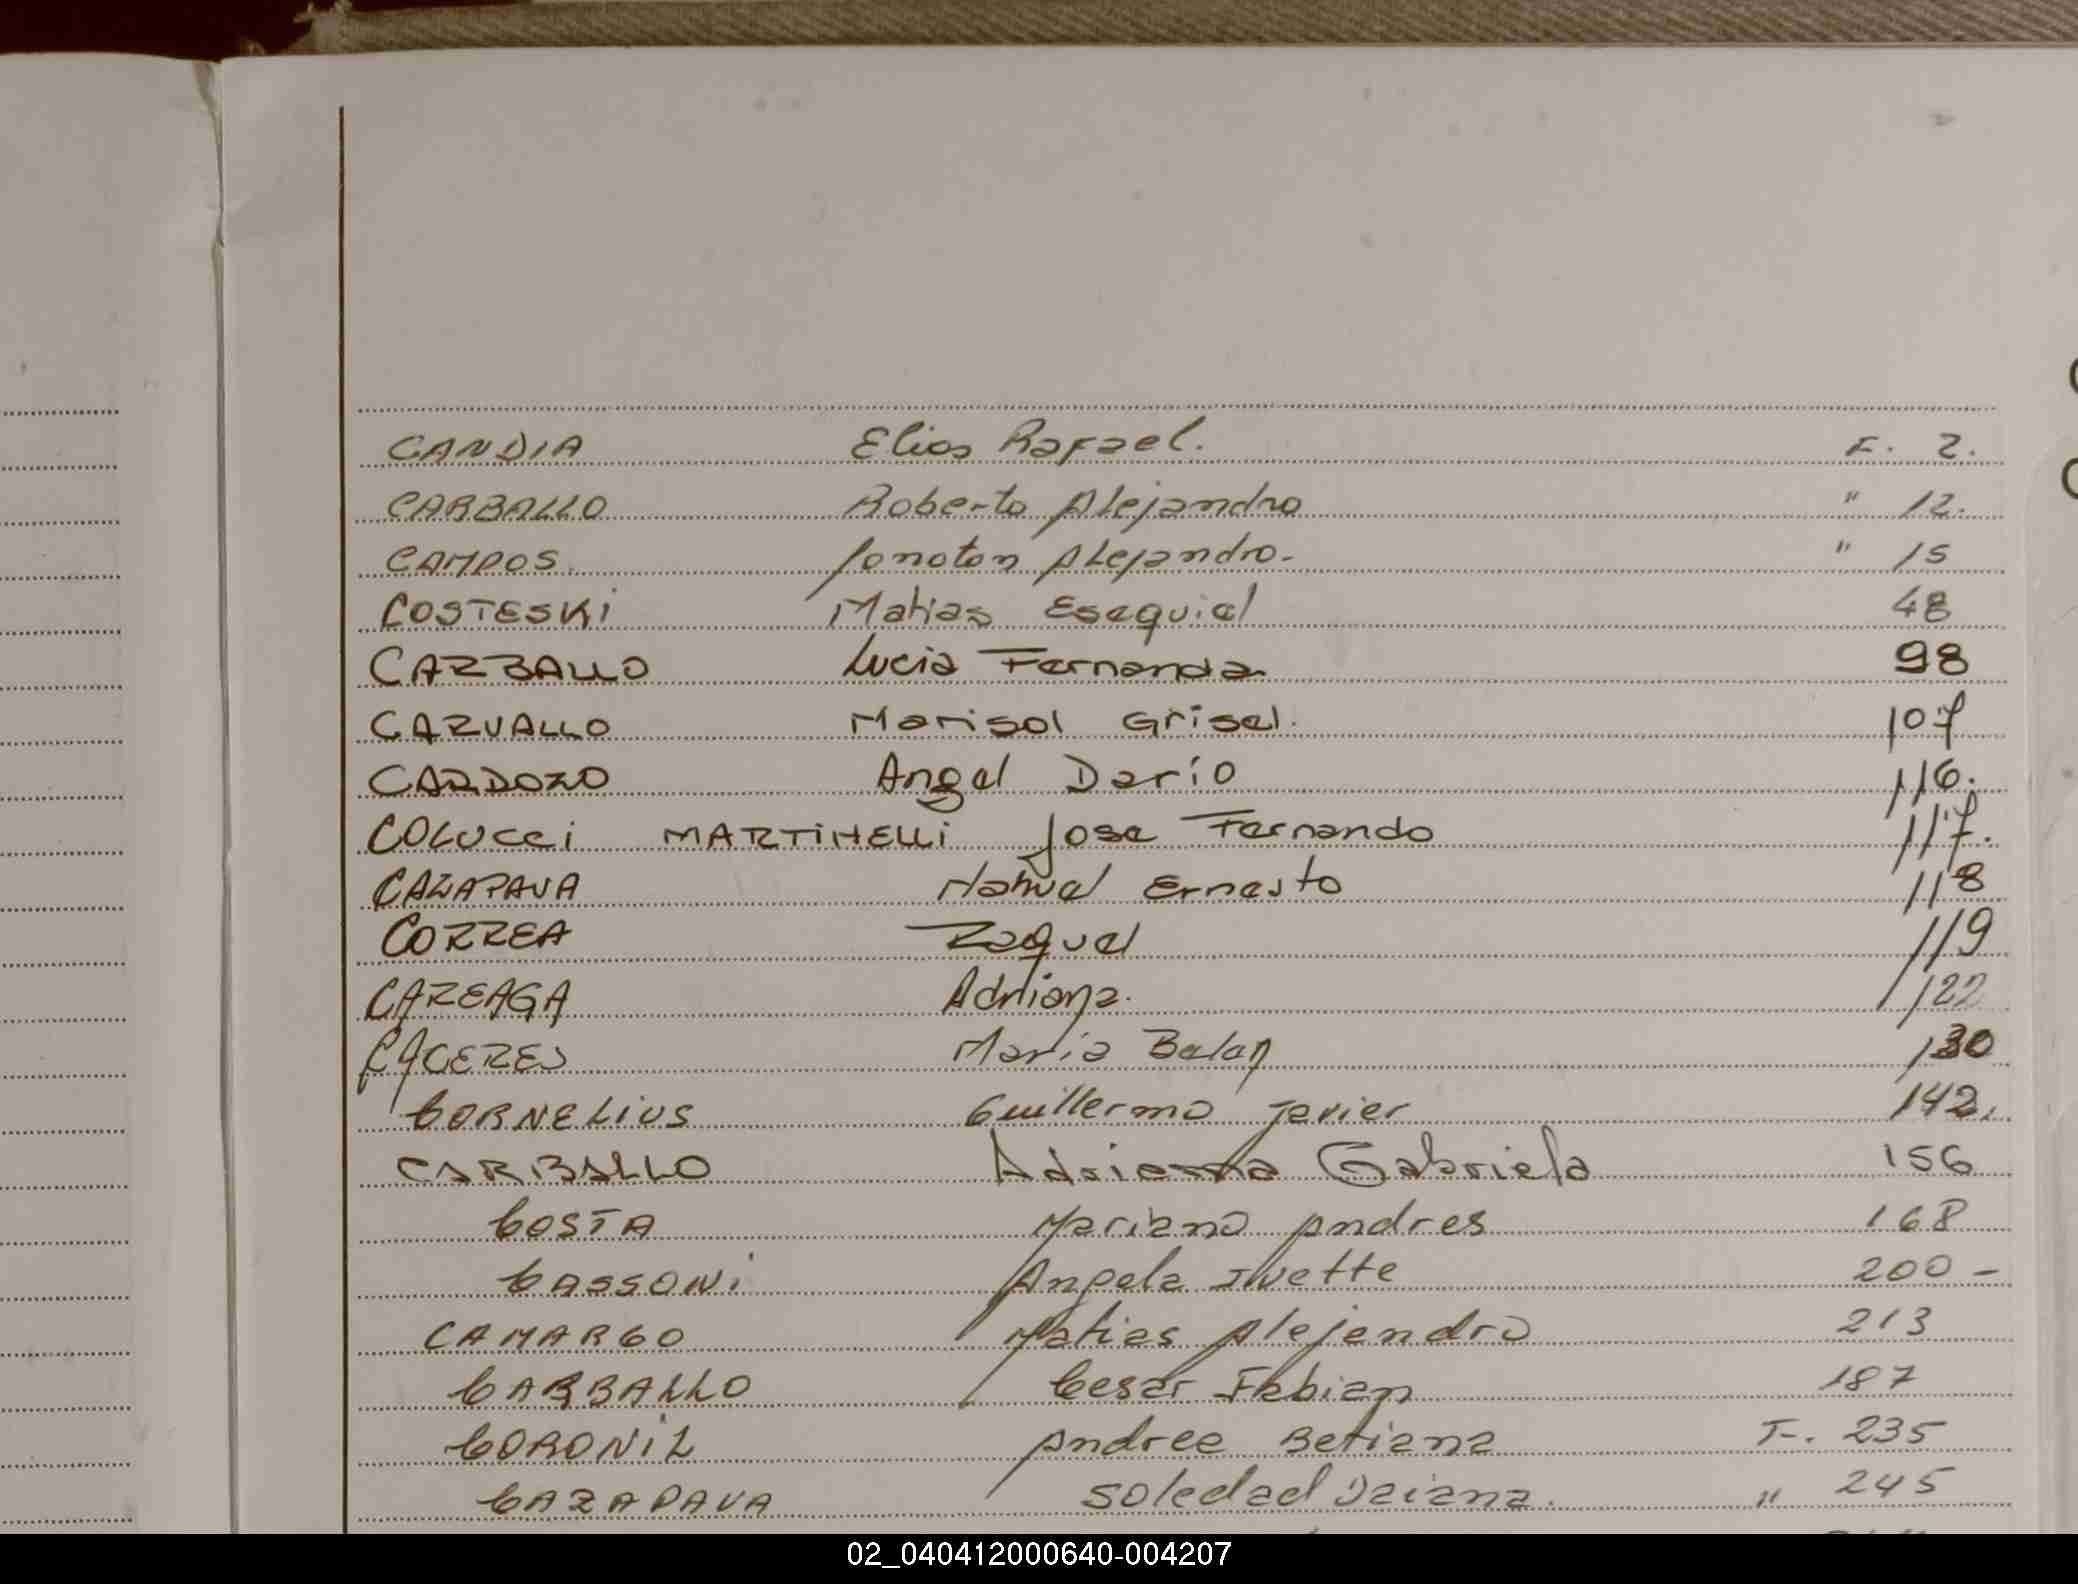 CANDIA Elias Rafael. F. 2.
CARBALLO Roberto Alejandro " 12.
CAMPOS. Jonatan Alejandro. " 15
COSTESKi Matias Esequiel 48
CARBALLO Lucia Fernanda 98
CARVALLO Marisol Grisel. 107
CARDOZO Angel Darío 116.
COLUCCi MARTiNELLi Jose Fernando 117.
CAZAPAVA Nahuel Ernesto 118
CORREA Raquel 119
CAREAGA Adriana. 122
CACERES Maria Belen 130
CORNELiUS Guillermo Javier 142.
CARBALLO Adriana Gabriela 156
COSTA Mariano Andres 168
CASSONi Angela Ivette 200 -
CAMARGO Matias Alejandro 213
CARBALLO Cesar Fabian 187
CORONiL Andrea Betiana F. 235
CAZAPAVA Soledad Daiana. " 245
02_040412000640-004207